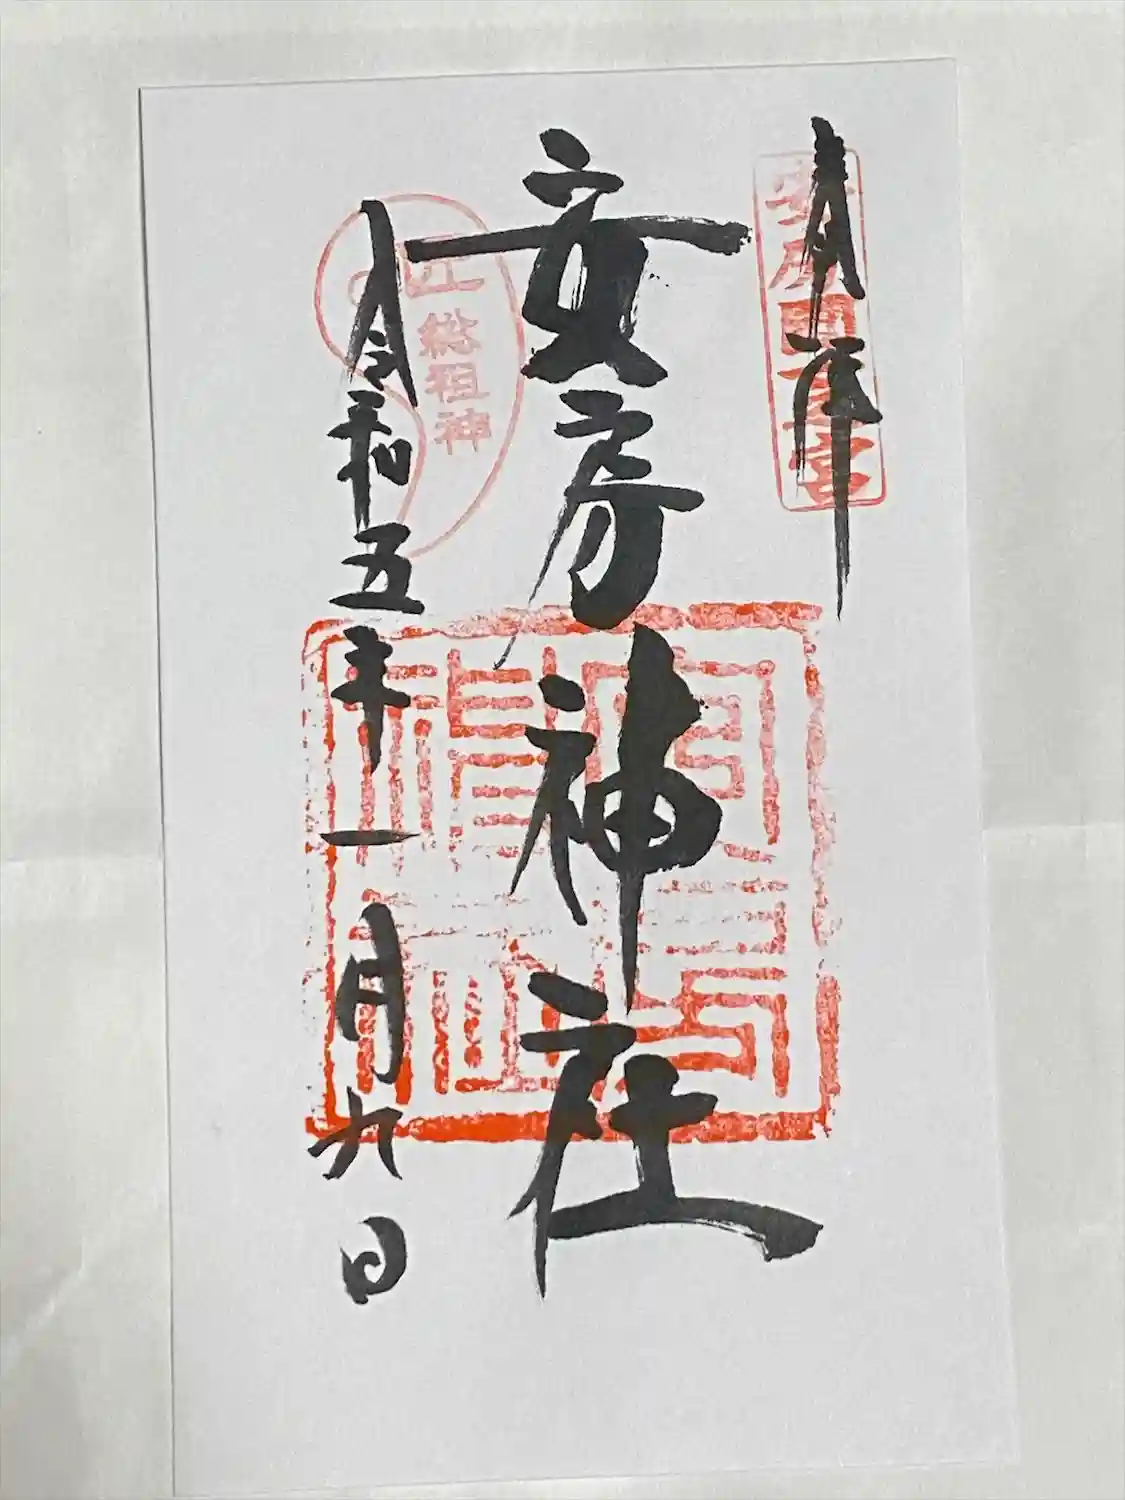 奉拝
安房國一之宮
安房神社
総祖神
令和五年一月九日